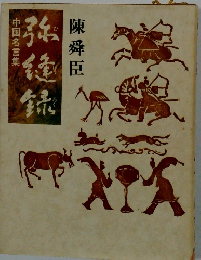 弥縫録
中国名言集
陳舜臣